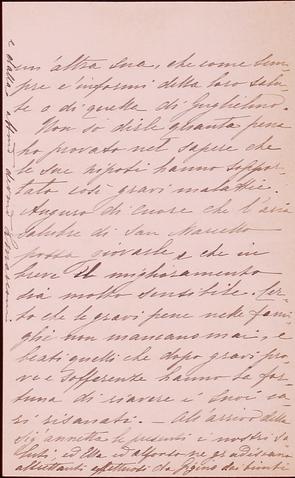 un'altra sua, che come sem
pre c'informi della loro salu
te e di quella di Guglielmo.
Non so dirle quanta pena
ho provato nel sapere che
le sue nipoti hanno soppor
tato così gravi malattie.
Auguro di cuore che l'aria
salubre di San Marcello
possa giovarle e che in
breve il miglioramento
sia molto sensibile. Cer
to che le gravi pene nelle fami
glie non mancano mai, e
beati quelli che dopo gravi pro
ve e sofferenze hanno la for
tuna di riavere i suoi ca
ri risanati. - All'arrivo della
Sig. Annetta le presenti i nostri sa
luti; ed Ella ed Alfonso ne gradiscano
altrettanti affettuosi da